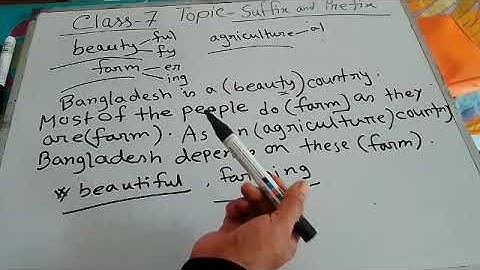 Class-7 Topic-Suffix and Prefix
beauty ful fy agriculture al
farm er ing
Bangladesh is a (beauty) country.
Most of the people do (farm) as they
are (farm). As an (agriculture) country
Bangladesh depends on these (farm).
* beautiful, farming